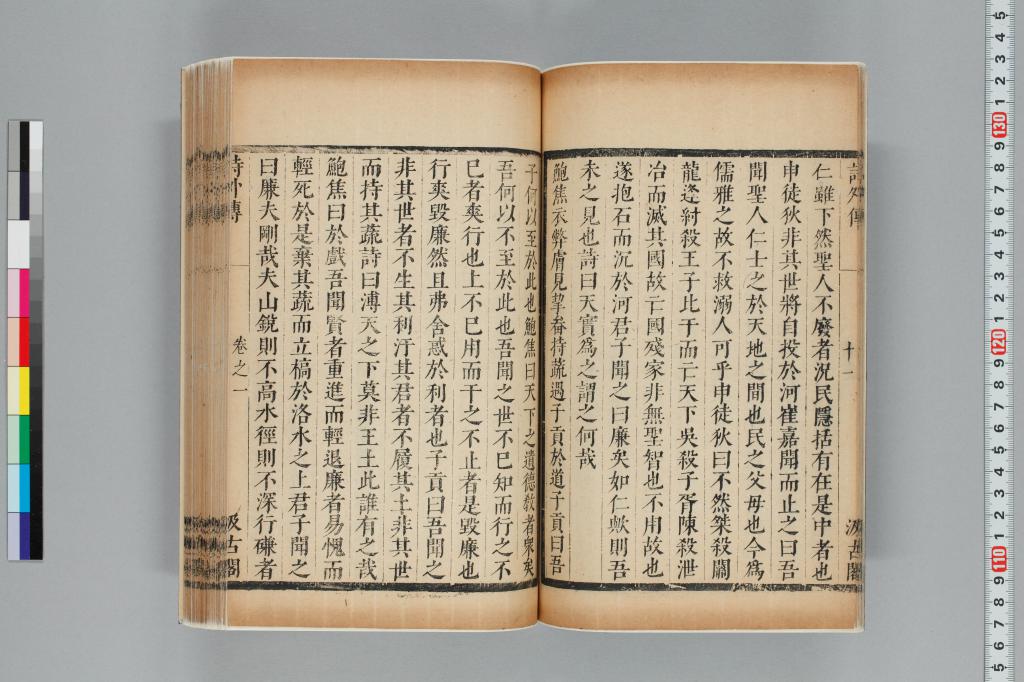 仁雖下然聖人不廢者況民隱括有在是中者也
申徒狄非其世將自投於河崔嘉聞而止之曰吾
聞聖人仁士之於天地之間也民之父母也今爲
儒雅之故不救溺人可乎申徒狄曰不然桀殺關
龍逄紂殺王子比干而亡天下吳殺子胥陳殺泄
冶而滅其國故亡國殘家非無聖智也不用故也
遂抱石而沉於河君子聞之曰廉矣如仁歟則吾
未之見也詩曰天實爲之謂之何哉
鮑焦衣弊膚見挈畚持蔬遇子貢於道子貢曰吾
子何以至於此也鮑焦曰天下之遺德敎者衆矣
吾何以不至於此也吾聞之世不已知而行之不
已者爽行也上不已用而干之不止者是毀廉也
行爽毀廉然且弗舍惑於利者也子貢曰吾聞之
非其世者不生其利汙其君者不履其土非其世
而持其蔬詩曰溥天之下莫非王土此誰有之哉
鮑焦曰於戲吾聞賢者重進而輕退廉者易愧而
輕死於是棄其蔬而立槁於洛水之上君子聞之
曰廉夫剛哉夫山銳則不高水徑則不深行磏者
詩外傳 卷之一 汲古閣
詩外傳 十一 汲古閣
5 4 3 2 1 130 9 8 7 6 5 4 3 2 1 120 9 8 7 6 5 4 3 2 1 110 9 8 7 6 5